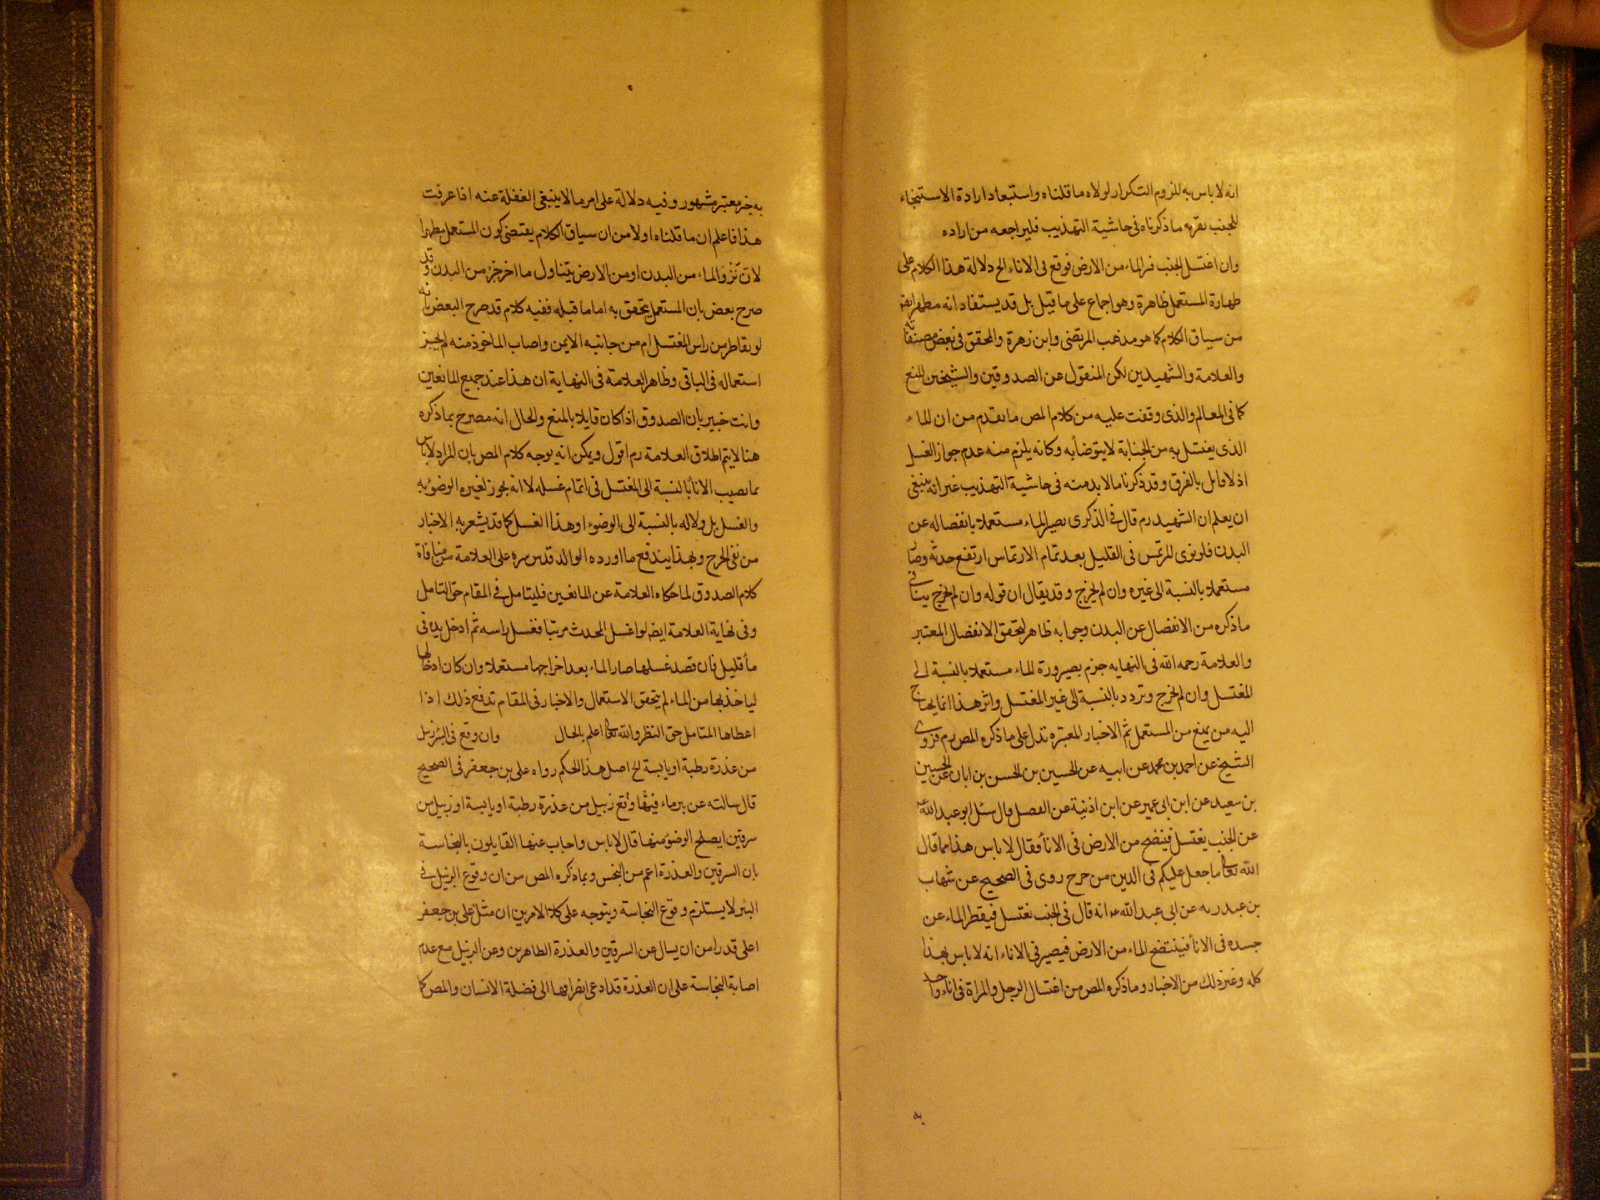 انه لا باس به للزوم التكرار لولاه ما قلناه واستبعاد ارادة الاستنجاء
للجنب بقربه ما ذكرناه فى حاشية التهذيب فليراجعه من اراده
وان اغتسل الجنب فنزا الماء من الارض فوقع فى الاناء الخ دلالة هذا الكلام على
طهارة المستعمل ظاهرة وهو اجماع على ما قيل بل قد يستفاد انه مطهر ايضا
من سياق الكلام كما هو مذهب المرتضى وابن زهرة والمحقق فى بعض مصنفاته
والعلامة والشهيدين لكن المنقول عن الصدوقين والشيخين المنع
كما فى المعالم والذى وقفت عليه من كلام المص ما تقدم من ان الماء
الذى يغتسل به من الجنابة لا يتوضأ به وكانه يلزم منه عدم جواز الغسل
اذ لا قايل بالفرق وقد ذكرنا ما لا بد منه فى حاشية التهذيب غير انه ينبغى
ان يعلم ان الشهيد رم قال فى الذكرى يصير الماء مستعملا بانفصاله عن
البدن فلو نوى المرتمس فى القليل بعد تمام الارتماس ارتفع حدثه وصار
مستعملا بالنسبة الى غيره وان لم يخرج وقد يقال ان قوله وان لم يخرج ينافى
ما ذكره من الانفصال عن البدن وجوابه ظاهر لتحقق الانفصال المعتبر
والعلامة رحمه الله فى النهايه جزم بصيرورة الماء مستعملا بالنسبة الى
المغتسل وان لم يخرج وتردد بالنسبة الى غير المغتسل واثر هذا انما يحتاج
اليه من يمنع من المستعمل ثم الاخبار المعتبره تدل على ما ذكره المص رم فروى
الشيخ عن احمد بن محمد عن ابيه عن الحسين بن الحسن بن ابان عن الحسين
بن سعيد عن ابن ابى عمير عن ابن اذنية عن الفضل قال سئل ابو عبد الله
عن الجنب يغتسل فينضح من الارض فى الاناء فقال لا باس هذا مما قال
الله تعالى ما جعل عليكم فى الدين من حرج روى فى الصحيح عن شهاب
بن عبد ربه عن ابى عبد الله ع انه قال فى الجنب يغتسل فيقطر الماء عن
جسده فى الاناء فينتضح الماء من الارض فيصير فى الاناء انه لا باس بهذا
كله وغير ذلك من الاخبار وما ذكره المص من اغتسال الرجل والمراة فى اناء واحد
به
به خبر معتبر مشهور وفيه دلالة على امر ما لا ينبغى الغفلة عنه اذا عرفت
هذا فاعلم ان ما قلناه اولا من ان سياق الكلام يقتضى كون المستعمل مطهرا
لان نزو الماء من البدن او من الارض يتناول ما اخر جزء من البدن وقد
صرح بعض بان المستعمل يتحقق به اما ما قبله ففيه كلام قد صرح البعض بانه
لو تقاطر من راس المغتسل ام من جانبه الايمن واصاب الماخوذ منه لم يجز
استعماله فى الباقى وظاهر العلامة فى النهاية ان هذا عند جميع المانعين
وانت خبير بان الصدوق اذا كان قايلا بالمنع والحال انه مصرح بما ذكره
هنا لا يتم اطلاق العلامة رم اقول ويمكن انه يوجه كلام المص بان المراد لا باس
بما يصيب الاناء بالنسبة الى المغتسل فى اتمام غسله لا انه يجوز لغيره الوضوء به
والغسل بل ولا له بالنسبة الى الوضوء او هذا الغسل كما قد يشعر به الاخبار
من نفى الحرج وبهذا يندفع ما اورده الوالد قدس سره على العلامة من منافاة
كلام الصدوق لما حكاه العلامة عن المانعين فليتامل فى المقام حق التامل
وفى نهاية العلامة ايضا لو اغسل المحدث مرتبا فغسل راسه ثم ادخل يده فى
ماء قليل فان قصد غسلها صار الماء بعد اخراجها مستعملا وان كان ادخلها
لياخذ بها من الماء لم يتحقق الاستعمال والاخبار فى المقام تدفع ذلك اذا
اعطاها المتامل حق النظر والله تعالى اعلم بالحال وان وقع فى البئر زبيل
من عذرة رطبة او يابسة الخ اصل هذا الحكم رواه على بن جعفر فى الصحيح
قال سالته عن بير ماء فيها وقع زبيل من عذرة رطبة او يابسة او زبيل من
سرقين ايصلح الوضوء منها قال لا باس واجاب عنها القايلون بالنجاسة
بان السرقين والعذرة اعم من النجس وبما ذكره المص من ان وقوع الزبيل فى
البئر لا يستلزم وقوع النجاسة ويتوجه على كلا الامرين ان مثل على بن جعفر
اعلى قدرا من ان يسال عن السرقين والعذرة الطاهرين وعن الزبيل مع عدم
اصابة النجاسة على ان العذرة قد ادعى انصرافها الى فضلة الانسان والمص كما